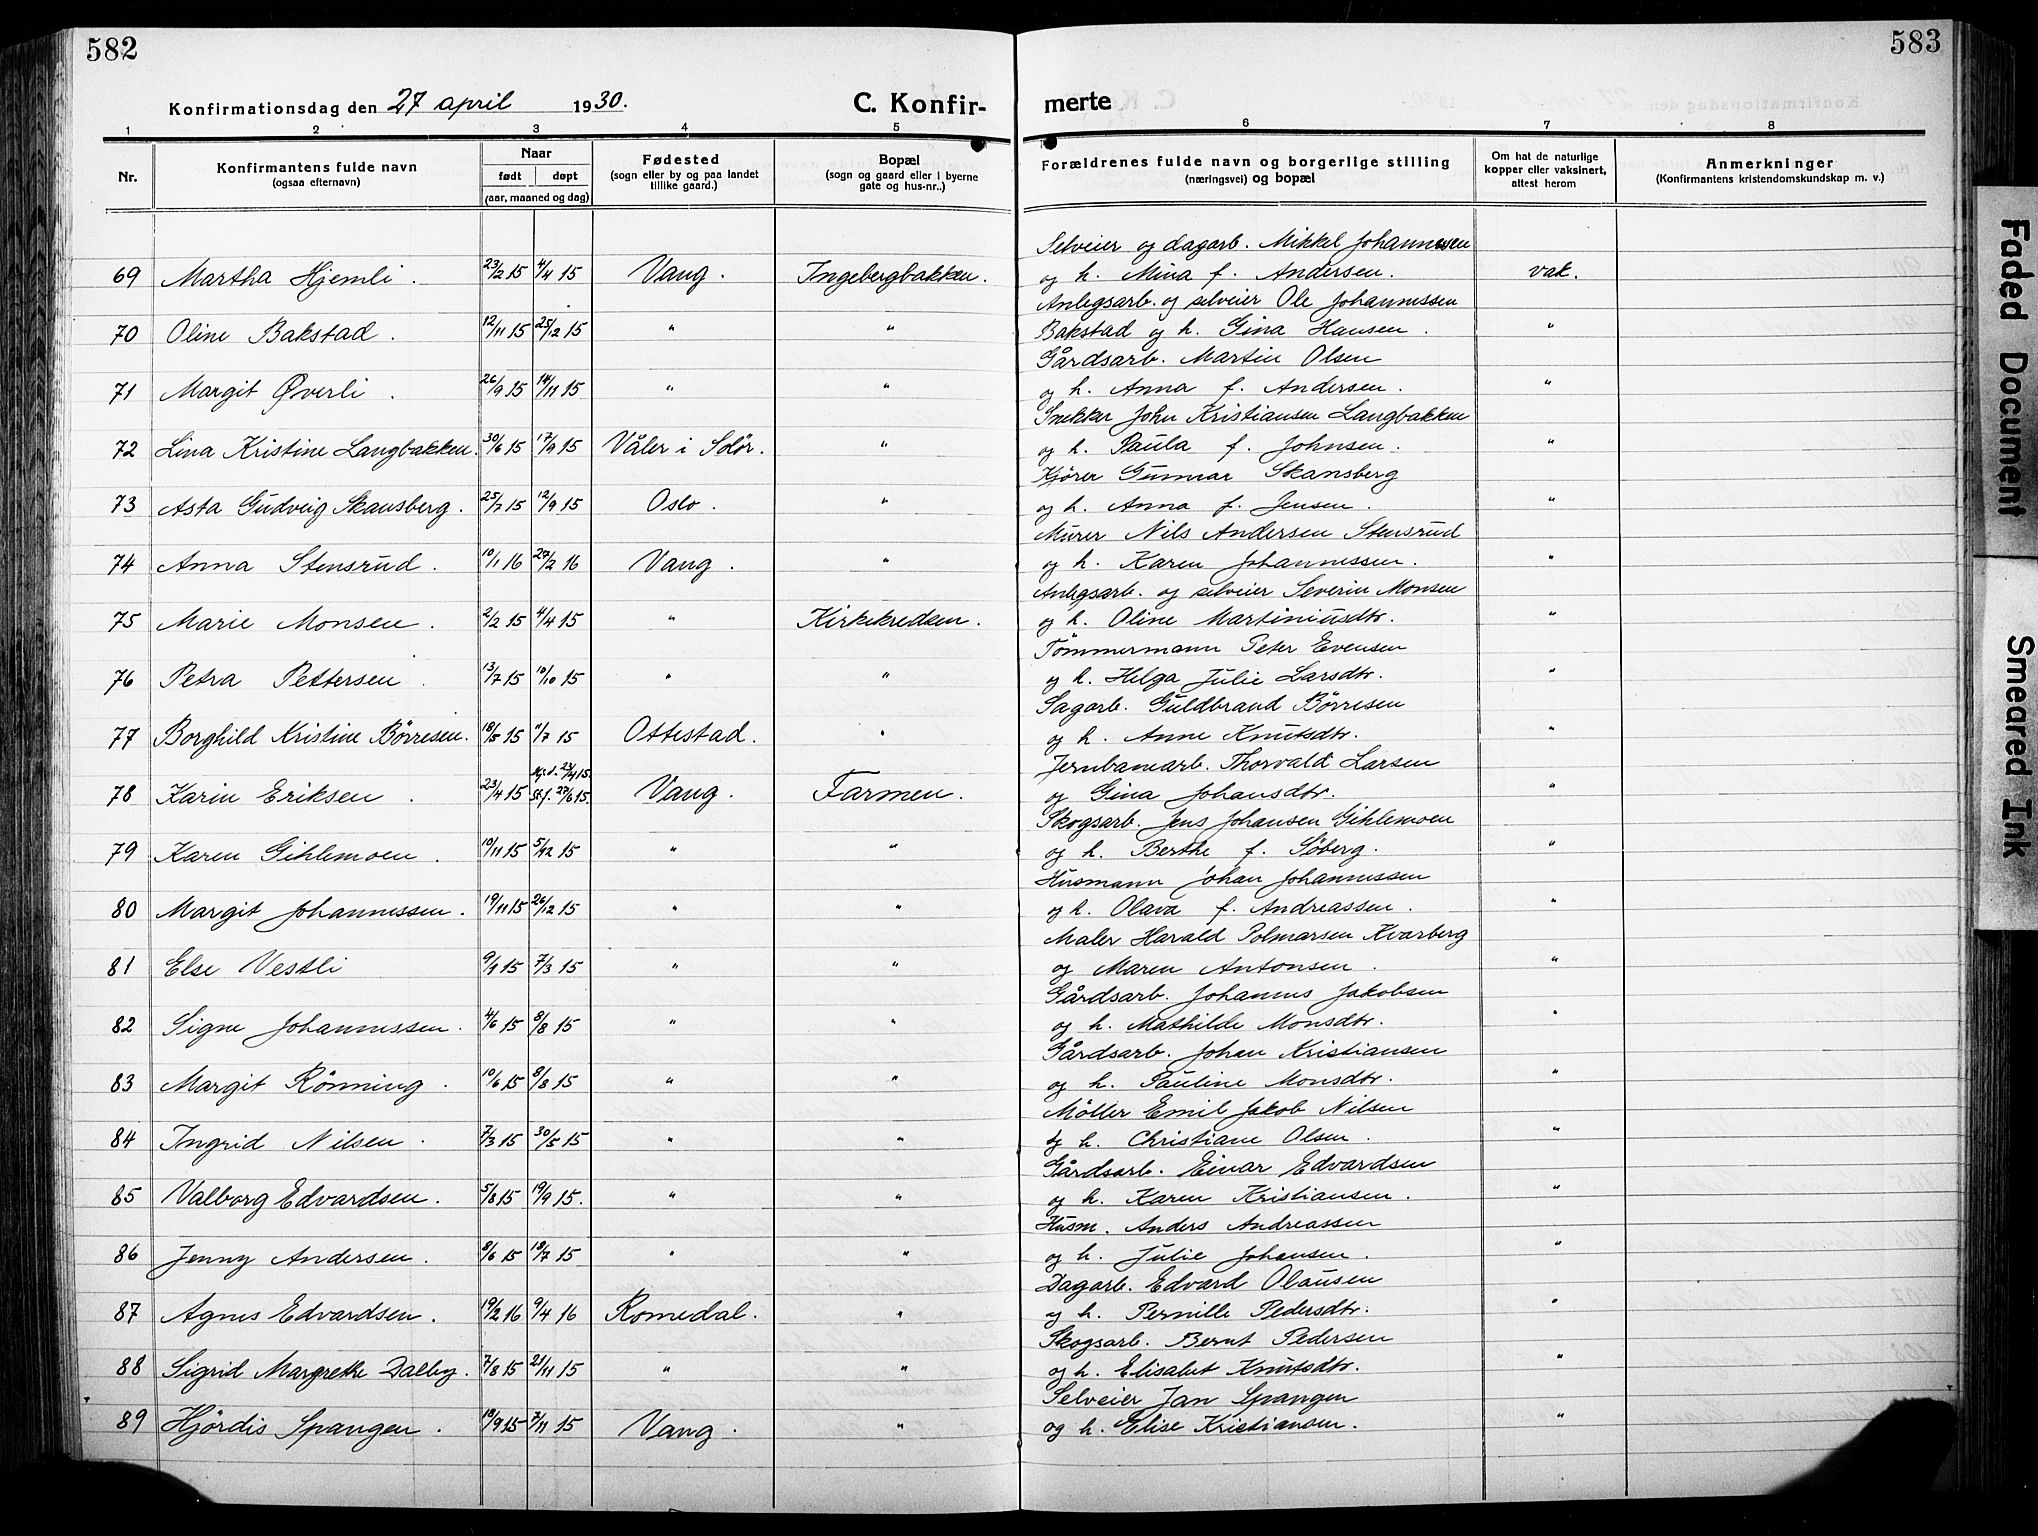 582
583
Konfirmationsdag den 27 april 1930.
C. Konfir-
merte
1 2 3 4 5 6 7 8
Nr.
Konfirmantens fulde navn
(ogsaa efternavn)
Naar
født døpt
(aar, maaned og dag)
Fødested
(sogn eller by og paa landet
tillike gaard.)
Bopæl
(sogn og gaard eller i byerne
gate og hus-nr..)
Forældrenes fulde navn og borgerlige stilling
(næringsvei) og bopæl
Om hat de naturlige
kopper eller vaksinert,
attest herom
Anmerkninger
(Konfirmantens kristendomskundskap m. v.)
Selveier og dagarb. Mikkel Johannessen
69 Martha Hjemli. 23/2 15 4/4 15 Vang. Ingebergbakken. og h. Mina f. Andersen. vak.
Anlegsarb. og selveier Ole Johannessen
70 Oline Bakstad. 12/11 15 25/12 15 " " Bakstad og h. Gina Hansen. "
Gårdsarb. Martin Olsen
71 Margit Øverli. 26/9 15 14/11 15 " " og h. Anna f. Andersen. "
Snekker John Kristiansen Langbakken
72 Lina Kristine Langbakken. 30/6 15 17/9 15 Våler i Solør. " og h. Paula f. Johnsen. "
Kjører Gunnar Skansberg
73 Asta Gudveig Skansberg. 25/7 15 12/9 15 Oslo. " og h. Anna f. Jensen. "
Murer Nils Andersen Stensrud
74 Anna Stensrud. 10/1 16 27/2 16 Vang. " og h. Karen Johannessen. "
Anlegsarb. og selveier Severin Monsen
75 Marie Monsen. 2/2 15 4/4 15 " Kirkekredsen. og h. Oline Martiniusdtr. "
Tömmermann Peter Evensen
76 Petra Pettersen. 13/7 15 10/10 15 " " og h. Helga Julie Larsdtr. "
Sagarb. Guldbrand Börresen
77 Borghild Kristine Börresen. 18/5 15 11/7 15 Ottestad. " og h. Anne Knutsdtr. "
Jernbanearb. Thorvald Larsen
78 Karin Eriksen. 23/4 15 Hj.d. 23/4 15. St.f. 27/6 15. Vang. Farmen. og Gina Johansdtr. "
Skogsarb. Jens Johansen Gihlemoen
79 Karen Gihlemoen. 10/11 15 5/12 15 " " og h. Berthe f. Söberg. "
Husmann Johan Johannessen
80 Margit Johannessen. 19/11 15 26/12 15 " " og h. Olava f. Andreassen. "
Maler Harald Polmarsen Kvarberg
81 Else Vestli 9/1 15 7/3 15 " " og Maren Antonsen. "
Gårdsarb. Johannes Jakobsen
82 Signe Johannessen. 4/6 15 8/8 15 " " og h. Mathilde Monsdtr. "
Gårdsarb. Johan Kristiansen
83 Margit Rönning. 10/6 15 8/8 15 " " og h. Pauline Monsdtr. "
Möller Emil Jakob Nilsen
84 Ingrid Nilsen. 7/3 15 30/5 15 " " og h. Christiane Olsen. "
Gårdsarb. Einar Edvardsen
85 Valborg Edvardsen. 5/8 15 19/9 15. " " og h. Karen Kristiansen. "
Husm. Anders Andreassen
86 Jenny Andersen. 8/6 15 18/7 15 " " og h. Julie Johansen. "
Dagarb. Edvard Olausen
87 Agnes Edvardsen. 19/2 16 9/4 16 Romedal. " og h. Pernille Pedersdtr. "
Skogsarb. Bernt Pedersen
88 Sigrid Margrethe Dalby. 7/8 15 21/11 15 " " og h. Elisabet Knutsdtr. "
Selveier Jan Spangen
89 Hjördis Spangen. 18/9 15 7/11 15 Vang. " og h. Elise Kristiansen. "
Faded Document
Smeared Ink